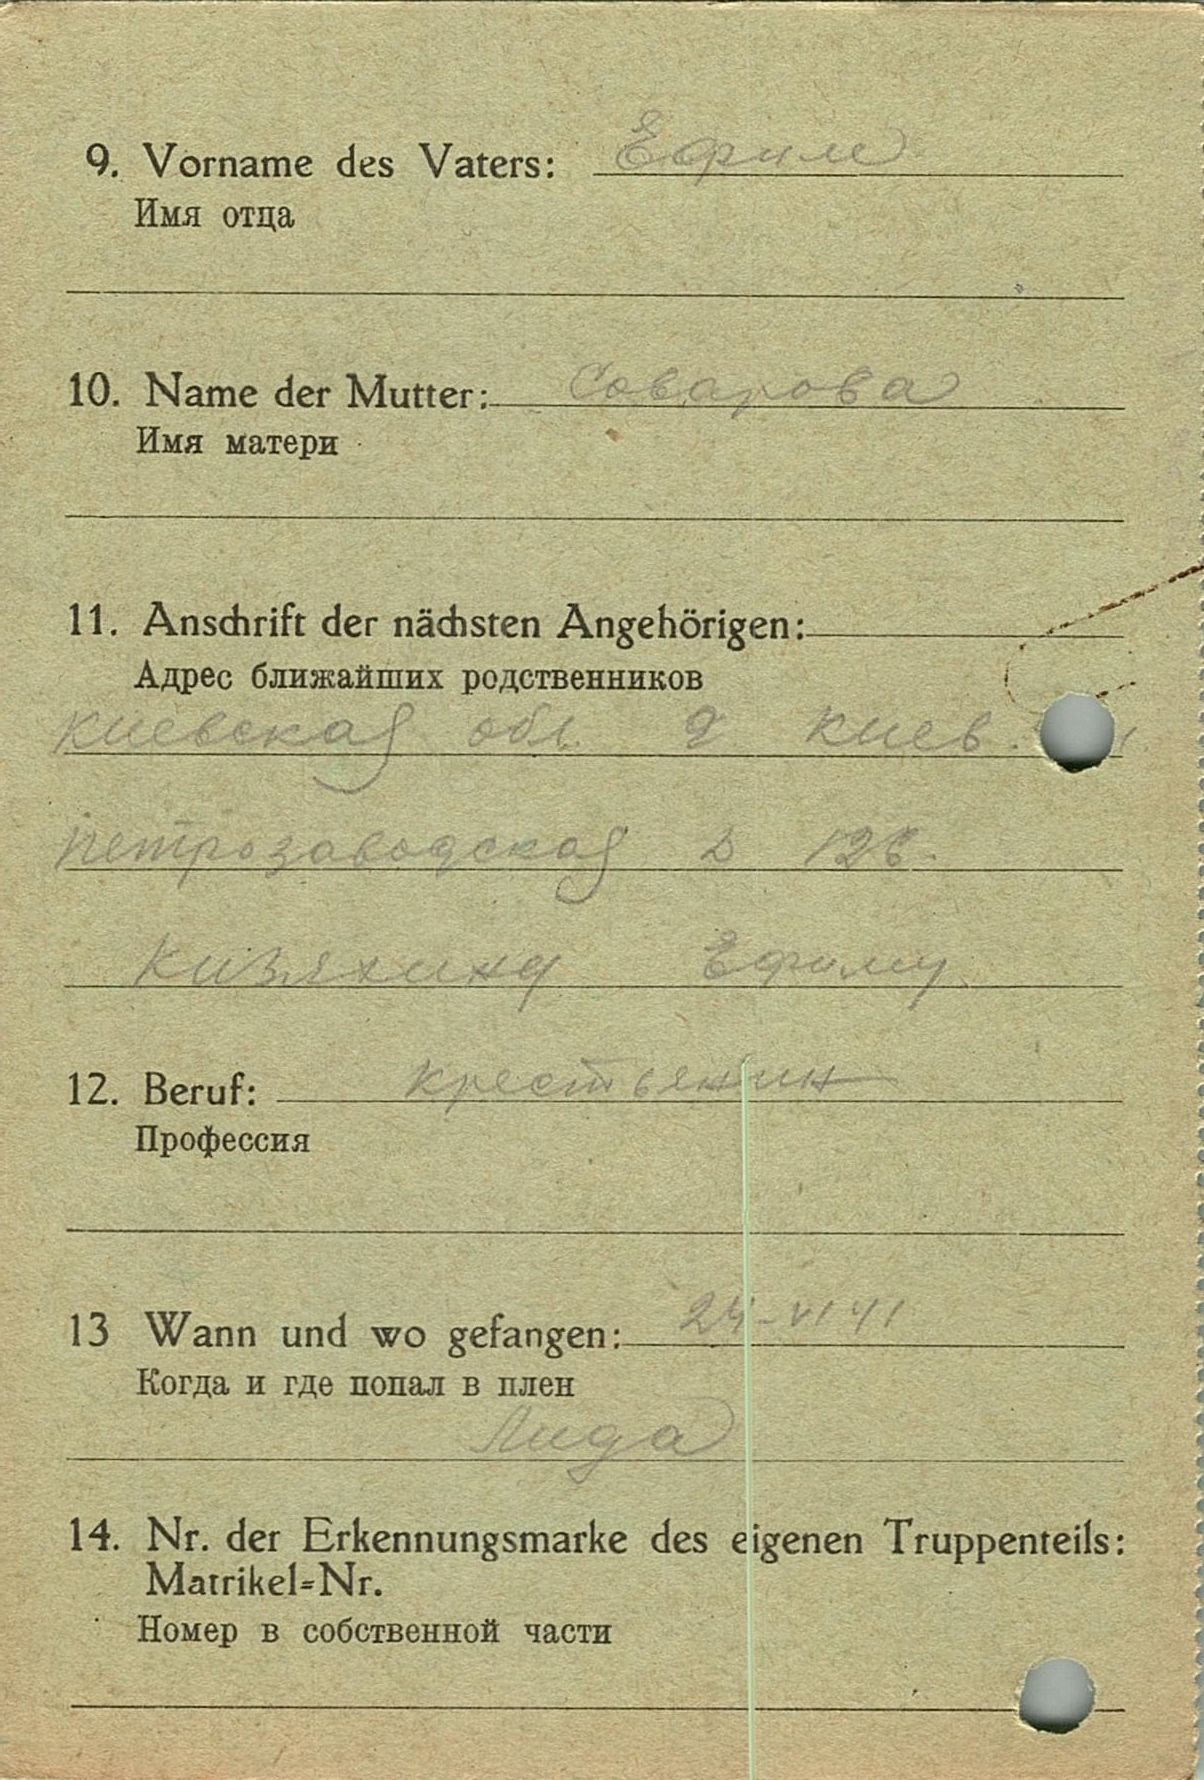 9. Vorname des Vaters: Ефим
Имя отца
10. Name der Mutter: Соварова
Имя матери
11. Anschrift der nächsten Angehörigen:
Адрес ближайших родственников
Киевская обл. г Киев.
Петрозаводская д 126.
Ефиму
12. Beruf: крестьянин
Профессия
13 Wann und wo gefangen: 24-VI 41
Когда и где попал в плен
Лида
14. Nr. der Erkennungsmarke des eigenen Truppenteils:
Matrikel=Nr.
Номер в собственной части